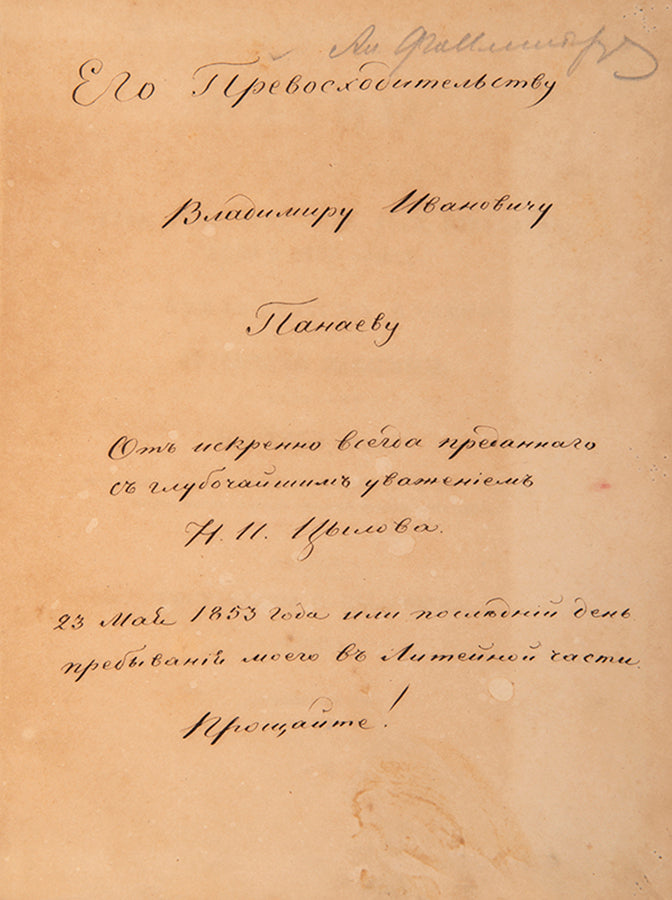 Его Превосходительству
Владимиру Ивановичу
Панаеву
Отъ искренно всегда преданнаго
съ глубочайшимъ уваженіемъ
Н. И. Цылова.
23 Май 1853 года или послѣдній день
пребываній моего въ Литейной части.
Прощайте!